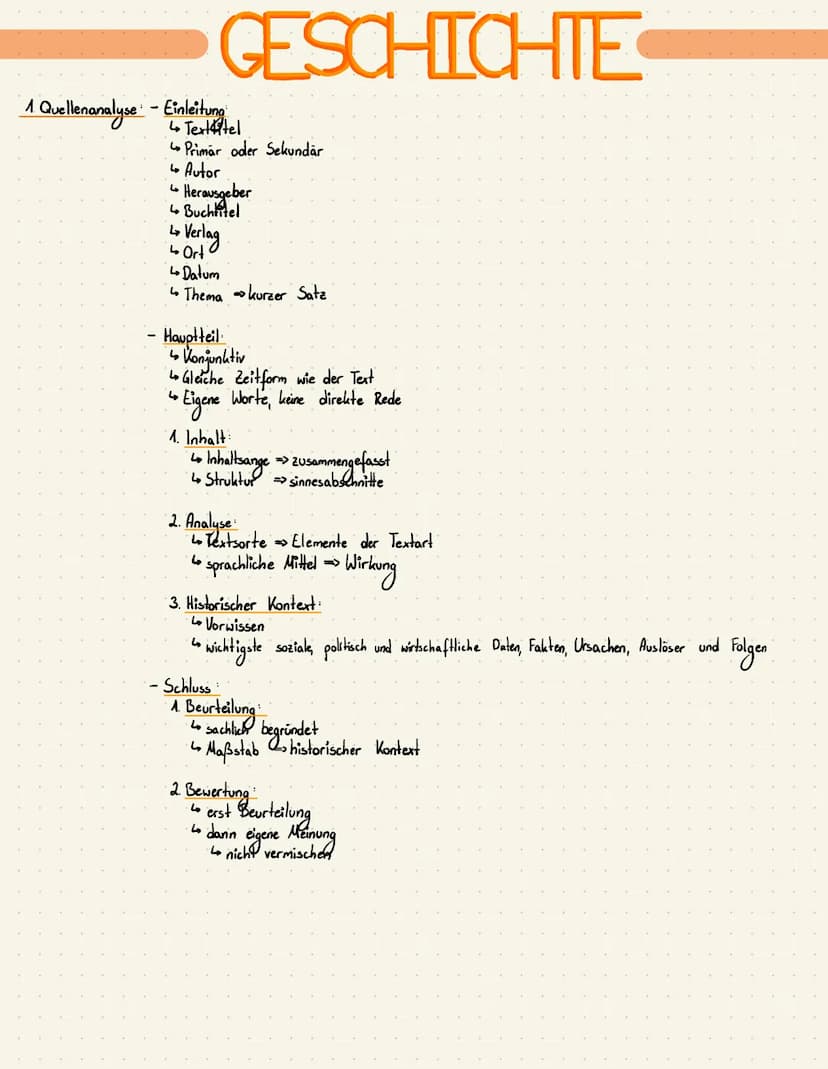 GESCHICHTE
1 Quellenanalyse: - Einleitung:
↳ Texttitel
↳ Primär oder Sekundär
↳ Autor
↳ Herausgeber
↳ Buchtitel
↳ Verlag
↳ Ort
↳ Datum
↳ Thema ⇒ kurzer Satz
- Hauptteil:
↳ Konjunktiv
↳ Gleiche Zeitform wie der Text
↳ Eigene Worte, keine direkte Rede
1. Inhalt:
↳ Inhaltsange ⇒ zusammengefasst
↳ Struktur ⇒ sinnesabschnitte
2. Analyse:
↳ Textsorte ⇒ Elemente der Textart
↳ sprachliche Mittel ⇒ Wirkung
3. Historischer Kontext:
↳ Vorwissen
↳ wichtigste soziale, politisch und wirtschaftliche Daten, Fakten, Ursachen, Auslöser und Folgen
- Schluss:
1. Beurteilung:
↳ sachlich begründet
↳ Maßstab ↳ historischer Kontext
2. Bewertung:
↳ erst Beurteilung
↳ dann eigene Meinung
↳ nicht vermischen